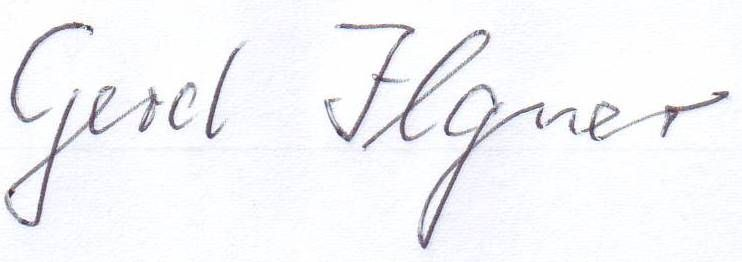 Gerd Ilgner